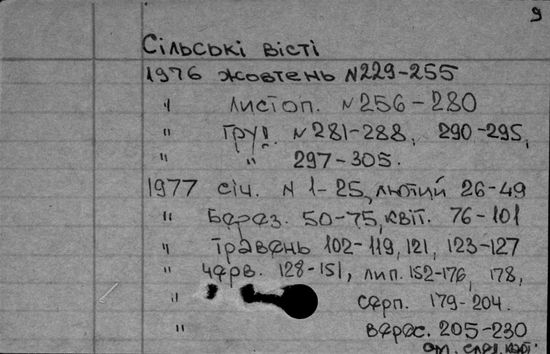 9
Сільські вісті
1976 жовтень N229-255
" листоп. N256-280
" груд. N281-288, 290-295,
" " 297-305.
1977 січ. N 1-25, лютий 26-49
" Берез. 50-75, квіт. 76-101
" травень 102-119, 121, 123-127
" черв. 128-151, лип. 152-176, 178,
" серп. 179-204.
" верес. 205-230